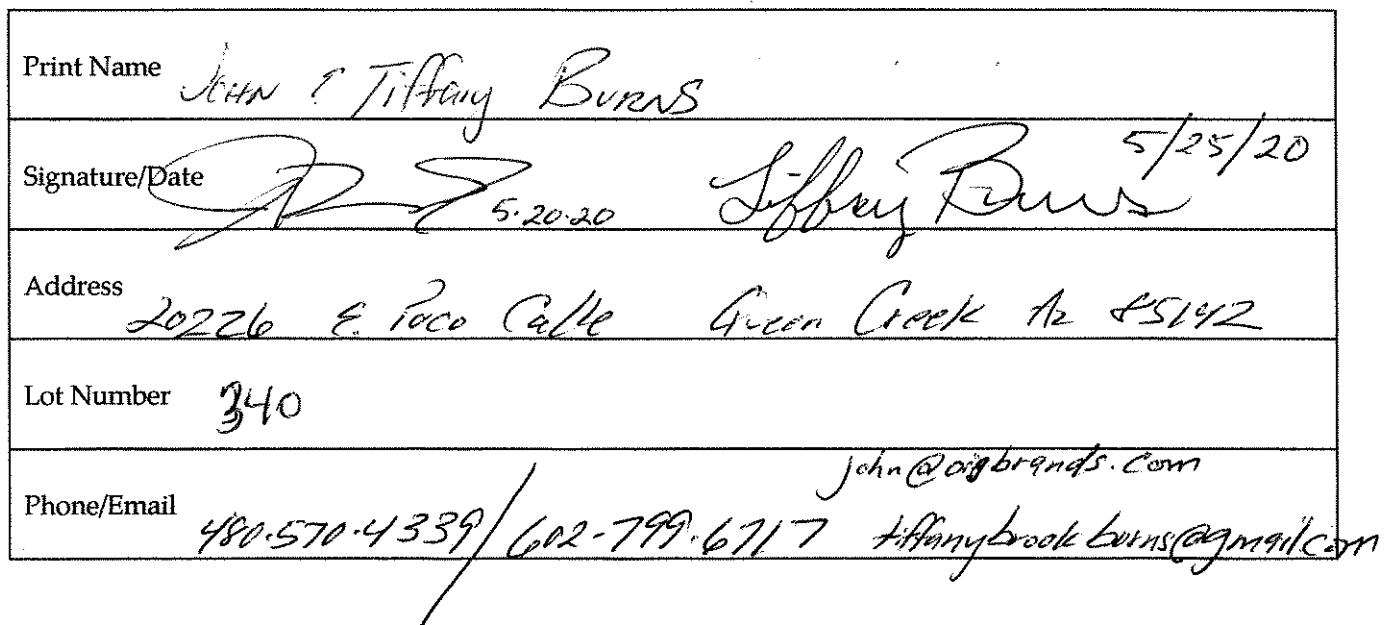 Print Name JOHN & Tiffany BURNS
Signature/Date 5·20·20 Tiffany Burns 5/25/20
Address 20226 E. Poco Calle Queen Creek Az 85142
Lot Number 340
john@oigbrands.com
Phone/Email 480·570·4339/602-799·6717 tiffanybrookburns@gmail.com